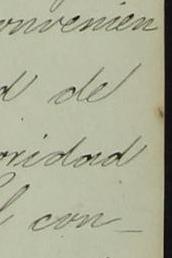 onvenien
d de
oridad
l con_